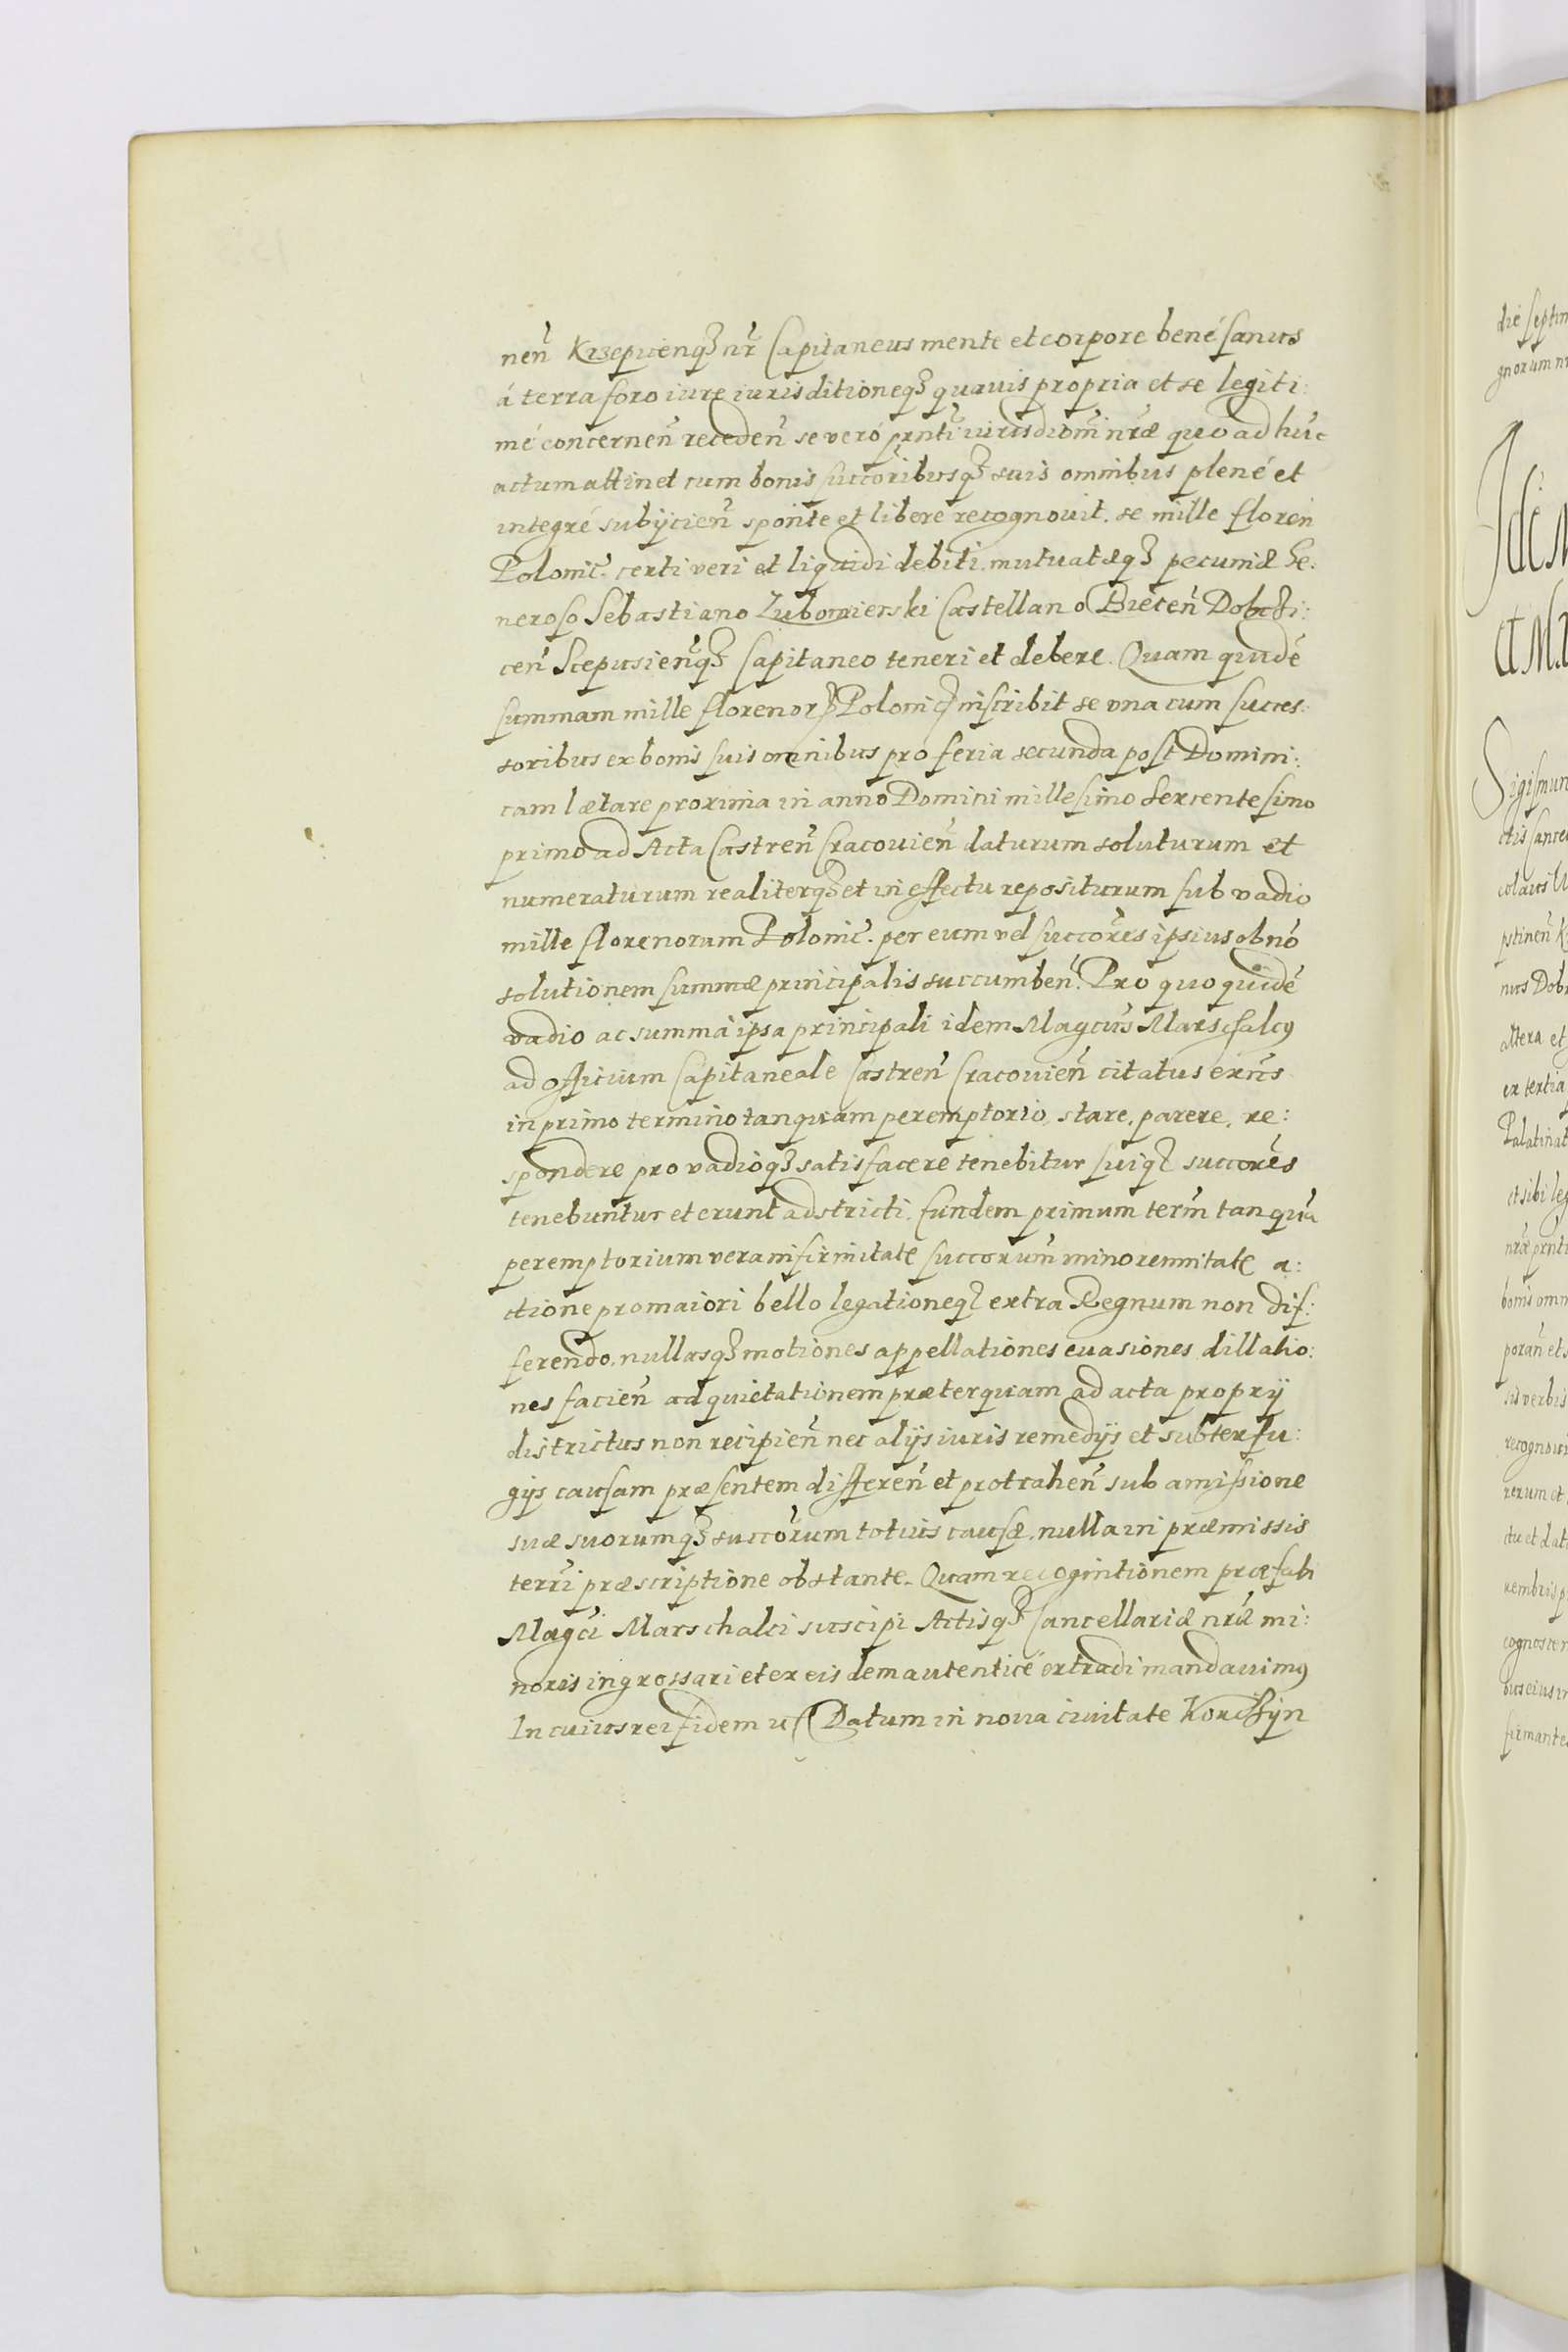 nen̄ Krzepicenq₃ nr̄ Capitaneus mente et corpore bené sanus
á terra foro iure iurisditioneq₃ quauis propria et se legiti:
mé concernen̄ receden̄ se veró pn̄ti iurisdiom̄ nr̄æ quo ad hūc
actum attinet cum bonis succōribusq₃ suis omnibus plené et
integré subijcien̄ sponte et libere recognouit. se mille floren̄
Polonic̄. certi veri et liquidi debiti. mutuatæq₃ pecuniæ Ge:
neroso Sebastiano Lubomierski Castellano Biecen̄ Dobczi:
cen̄ Scepusien̄q₃ Capitaneo teneri et debere. Quam quidē
summam mille florenorꝝ Polonic̄ inscribit se vna cum succes:
soribus ex bonis suis omnibus pro feria secunda post Domini:
cam lætare proxima in anno Domini millesimo Sexcentesimo
primo ad Acta Castren̄ Cracouien̄ daturum soluturum et
numeraturum realiterq₃ et in effectu repositurum sub vadio
mille florenorum Polonic̄. per eum vel succōres ipsius ob nō
solutionem summæ principalis succumben̄. Pro quo quidē
vadio ac summa ipsa principali idem Magcūs Marschalcꝰ
ad officium Capitaneale Castren̄ Cracouien̄ citatus exn̄s
in primo termino tanquam peremptorio, stare, parere, re:
spondere pro vadioq₃ satisfacere tenebitur suiq₃ succōres
tenebuntur et erunt adstricti. Eundem primum term̄ tanquā
peremptorium vera infirmitate succōrum minorennitate a:
ctione pro maiori bello legationeq₃ extra Regnum non dif:
ferendo, nullasq₃ motiones appellationes euasiones dillatio:
nes facien̄ ad quietationem præterquam ad acta proprij
districtus non recipien̄ nec alijs iuris remedijs et subterfu:
gijs causam præsentem differen̄ et protrahen̄ sub amissione
suæ suorumq₃ succōrum totius causæ, nulla in præmissis
terr̄i præscriptione obstante. Quam recognitionem præfati
Magc̄i Marschalci suscipi Actisq₃ Cancellariæ nr̄æ mi:
noris ingrossari et ex eisdem autenticé extradi mandauimꝰ
In cuius rei fidem zc̄ Datum in noua ciuitate Korczijn